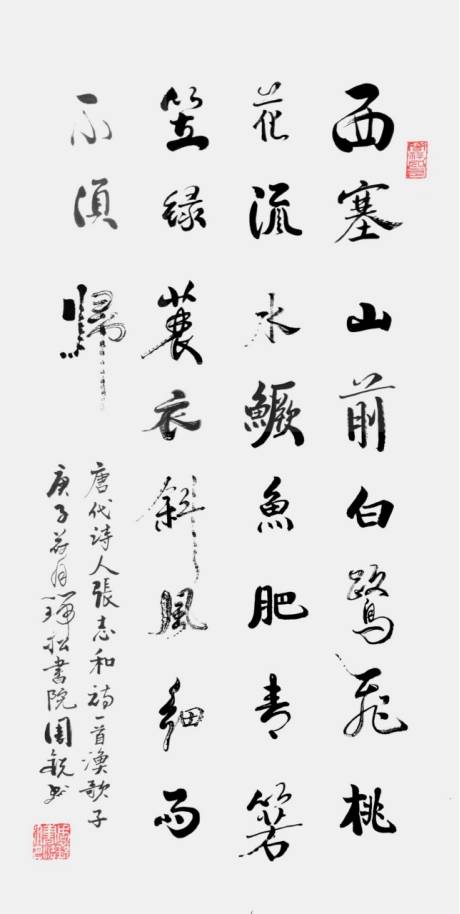 西塞山前白鷺飛桃
花流水鱖魚肥青箬
笠緑蓑衣斜風細雨
不須歸
唐代詩人張志和詩一首漁歌子
庚子荷月瑞松書院周銳書